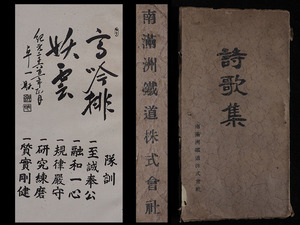 高吟排
妖雲
紀元二千六百年
卓一歌
隊訓
一至誠奉公
一融和一心
一規律嚴守
一研究練磨
一質實剛健
南滿洲鐵道株式會社
詩歌集
南滿洲鐵道株式會社